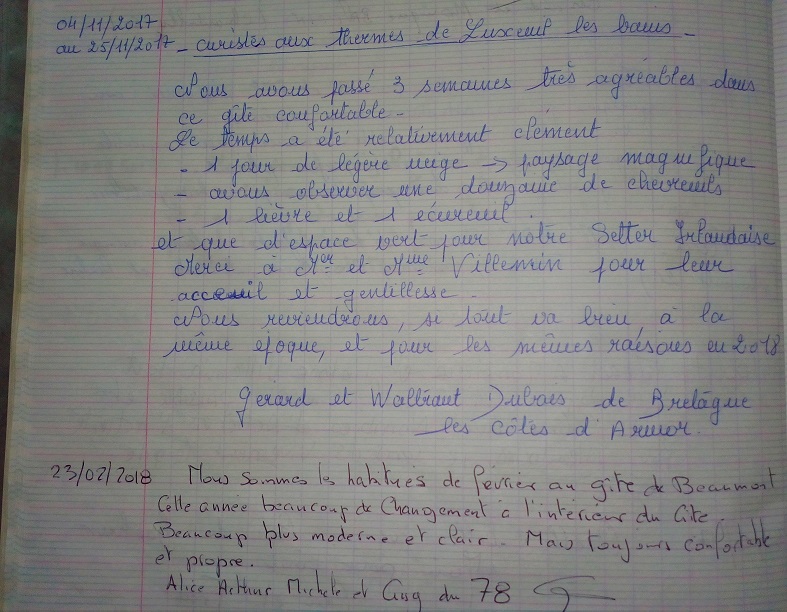 04/11/2017
au 25/11/2017 - curistes aux thermes de Luxeuil les bains -
Nous avons passé 3 semaines très agréables dans
ce gîte confortable -
Le temps a été relativement clément
- 1 jour de légère neige -> paysage magnifique
- avons observer une douzaine de chevreuils
- 1 lièvre et 1 écureuil.
et que d'espace vert pour notre Setter Irlandaise
Merci à Mer et Mme Villemin pour leur
accueil et gentillesse.
Nous reviendrons, si tout va bien, à la
même époque, et pour les mêmes raisons en 2018
Gérard et Waltraut de Bretagne
les côtes d'Armor.
23/02/2018 Nous sommes les habitués de février au gîte de Beaumont
Cette année beaucoup de Changement à l'intérieur du Gîte.
Beaucoup plus moderne et clair. Mais toujours confortable
et propre.
Alice Arthur Michele et Guy du 78